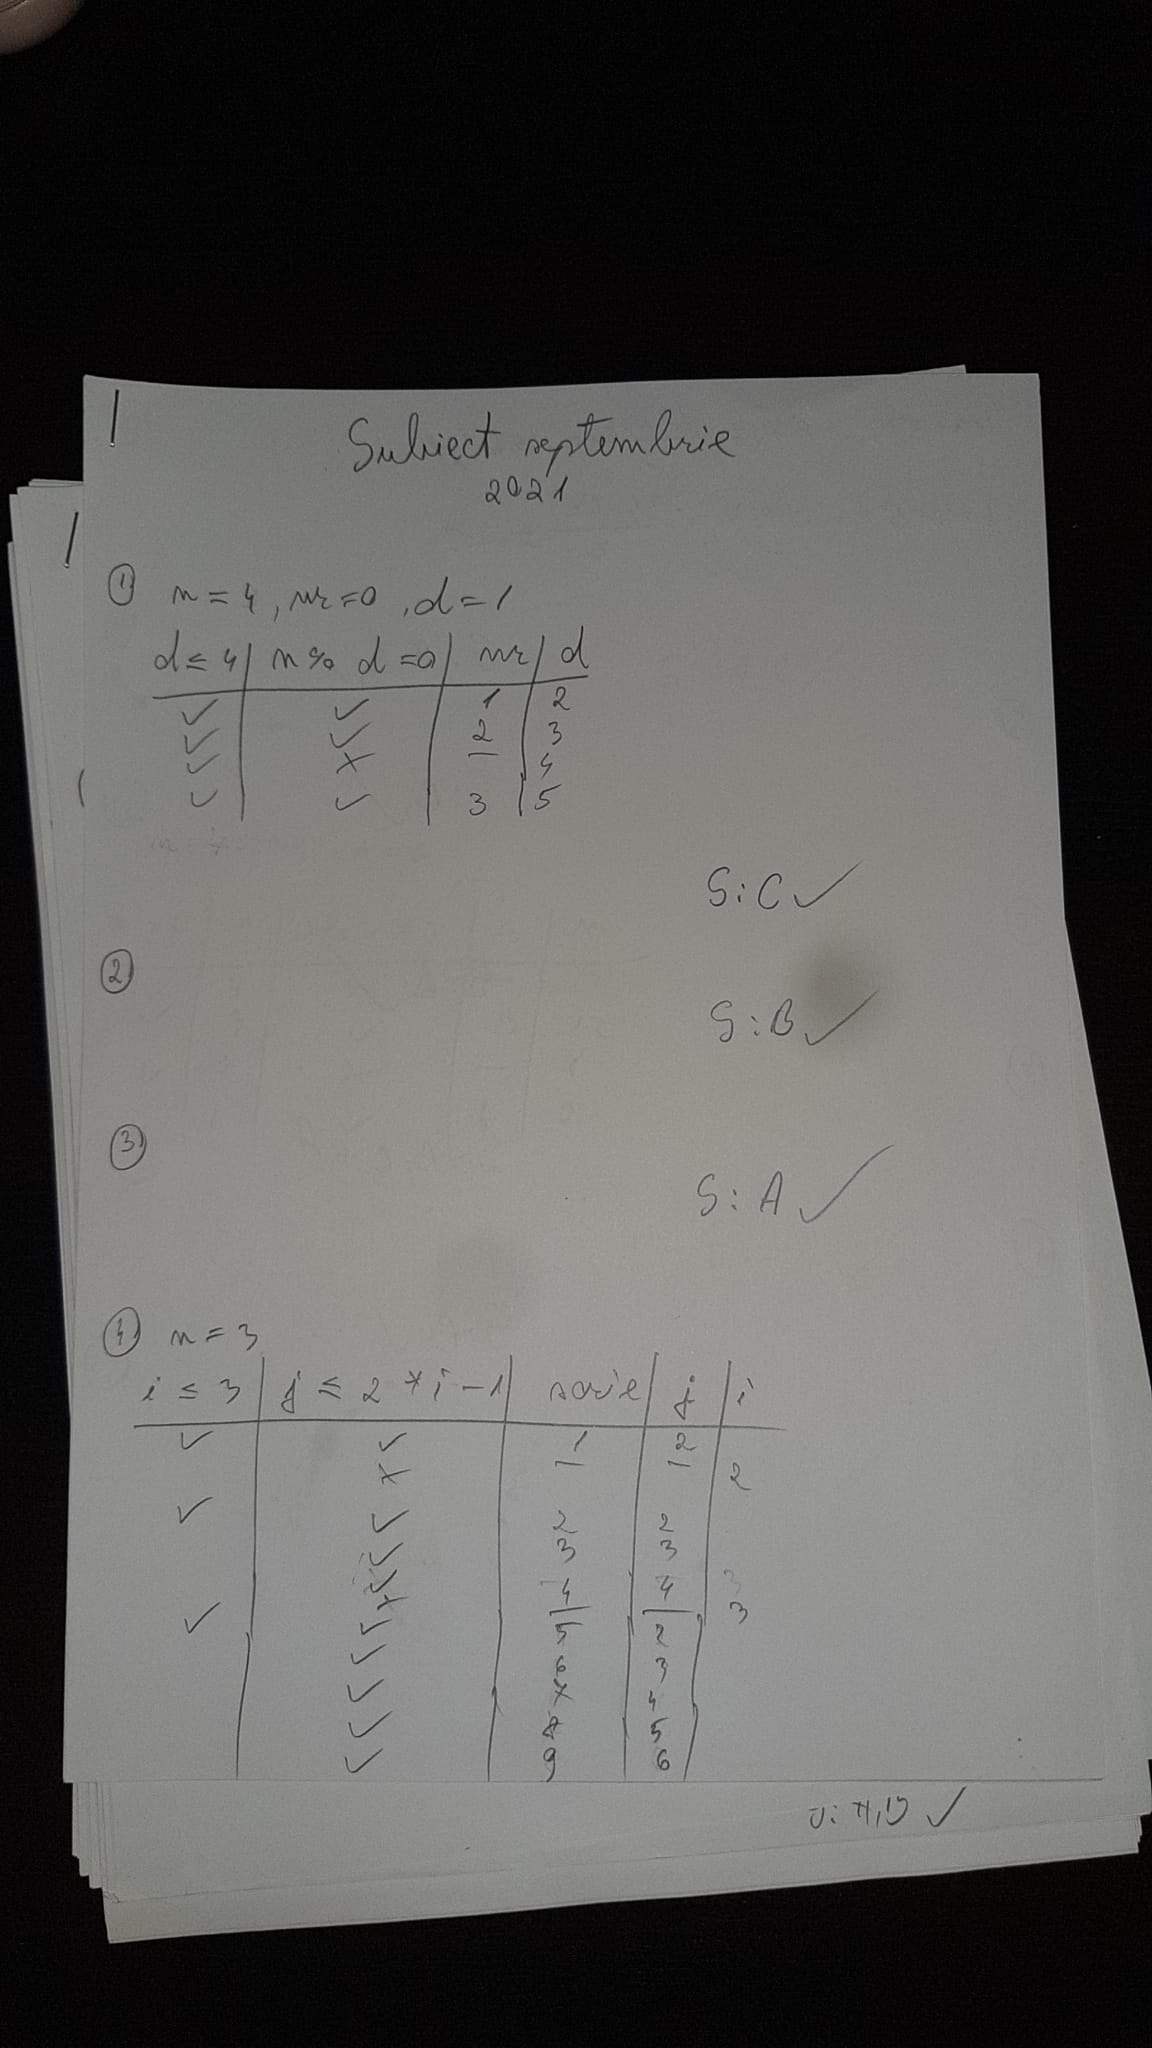 Subiect septembrie
2021
① n = 4, nr = 0, d = 1
d ≤ 4 | n % d = 0 | nr | d
✓ | ✓ | 1 | 2
✓ | ✓ | 2 | 3
✓ | × | — | 4
✓ | ✓ | 3 | 5
S: C ✓
②
S: B ✓
③
S: A ✓
④ n = 3
i ≤ 3 | j ≤ 2 * i - 1 | scrie | j | i
✓ | ✓ | 1 | 2
× | — | — | 2
✓ | ✓ | 2 | 2
✓ | 3 | 3
✓ | 4 | 4
× | 3
✓ | ✓ | 5 | 2
✓ | 6 | 3
✓ | 7 | 4
✓ | 8 | 5
✓ | 9 | 6